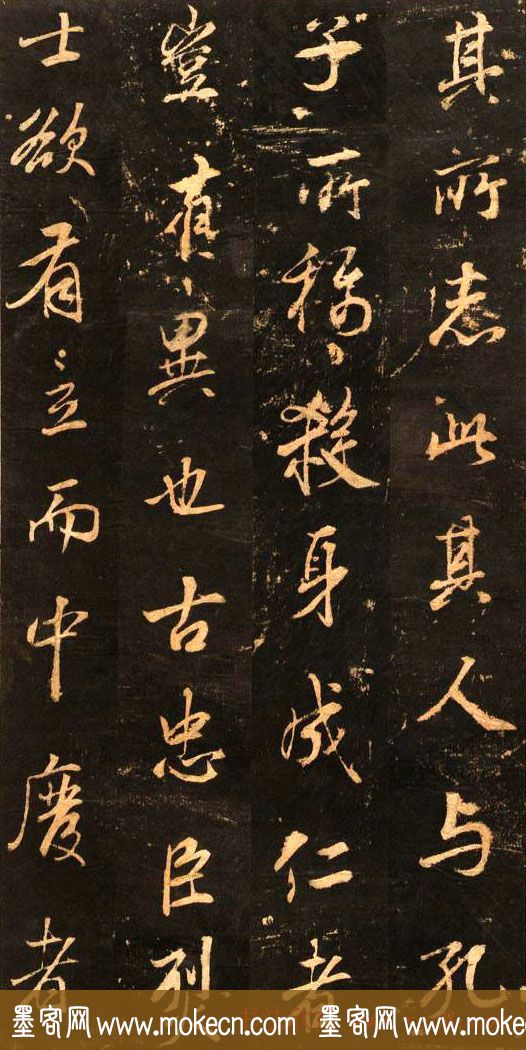 其所志此其人与孔
子所称殺身成仁者
豈異也古忠臣烈
士欲有立而中廢者
墨客网 www.mokecn.com 墨客网 www.mokecn.com